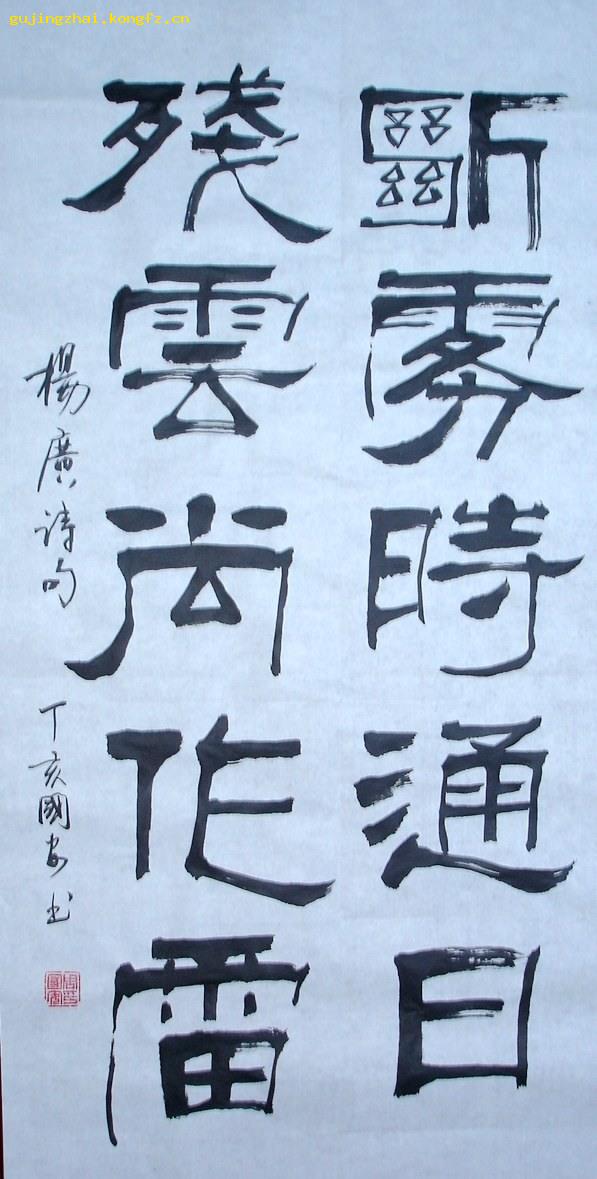 gujingzhai.kongfz.cn
斷霧時通日
殘雲尚作雷
楊廣詩句 丁亥國安书